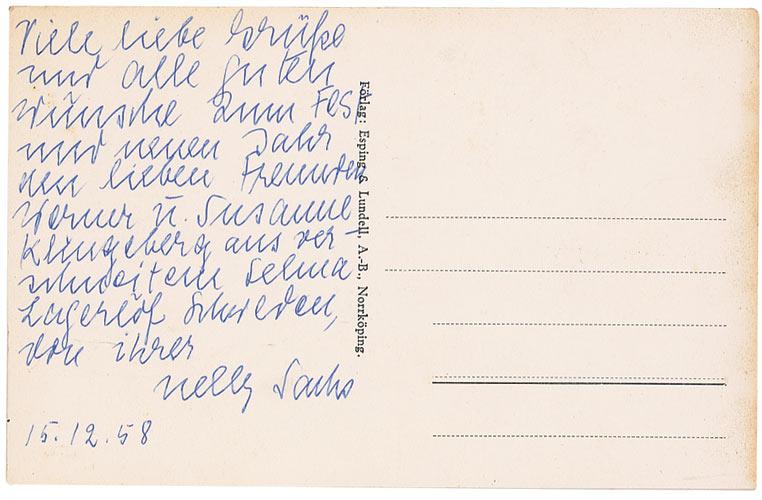 Viele liebe Grüße
und alle guten
Wünsche zum Fest
und neuen Jahr
den lieben Freunden
Werner u. Susanne
Klingeberg aus ver-
schneitem Selma
Lagerlöf Schweden,
von ihrer
Nelly Sachs
15.12.58
Förlag: Esping & Lundell, A.-B., Norrköping.